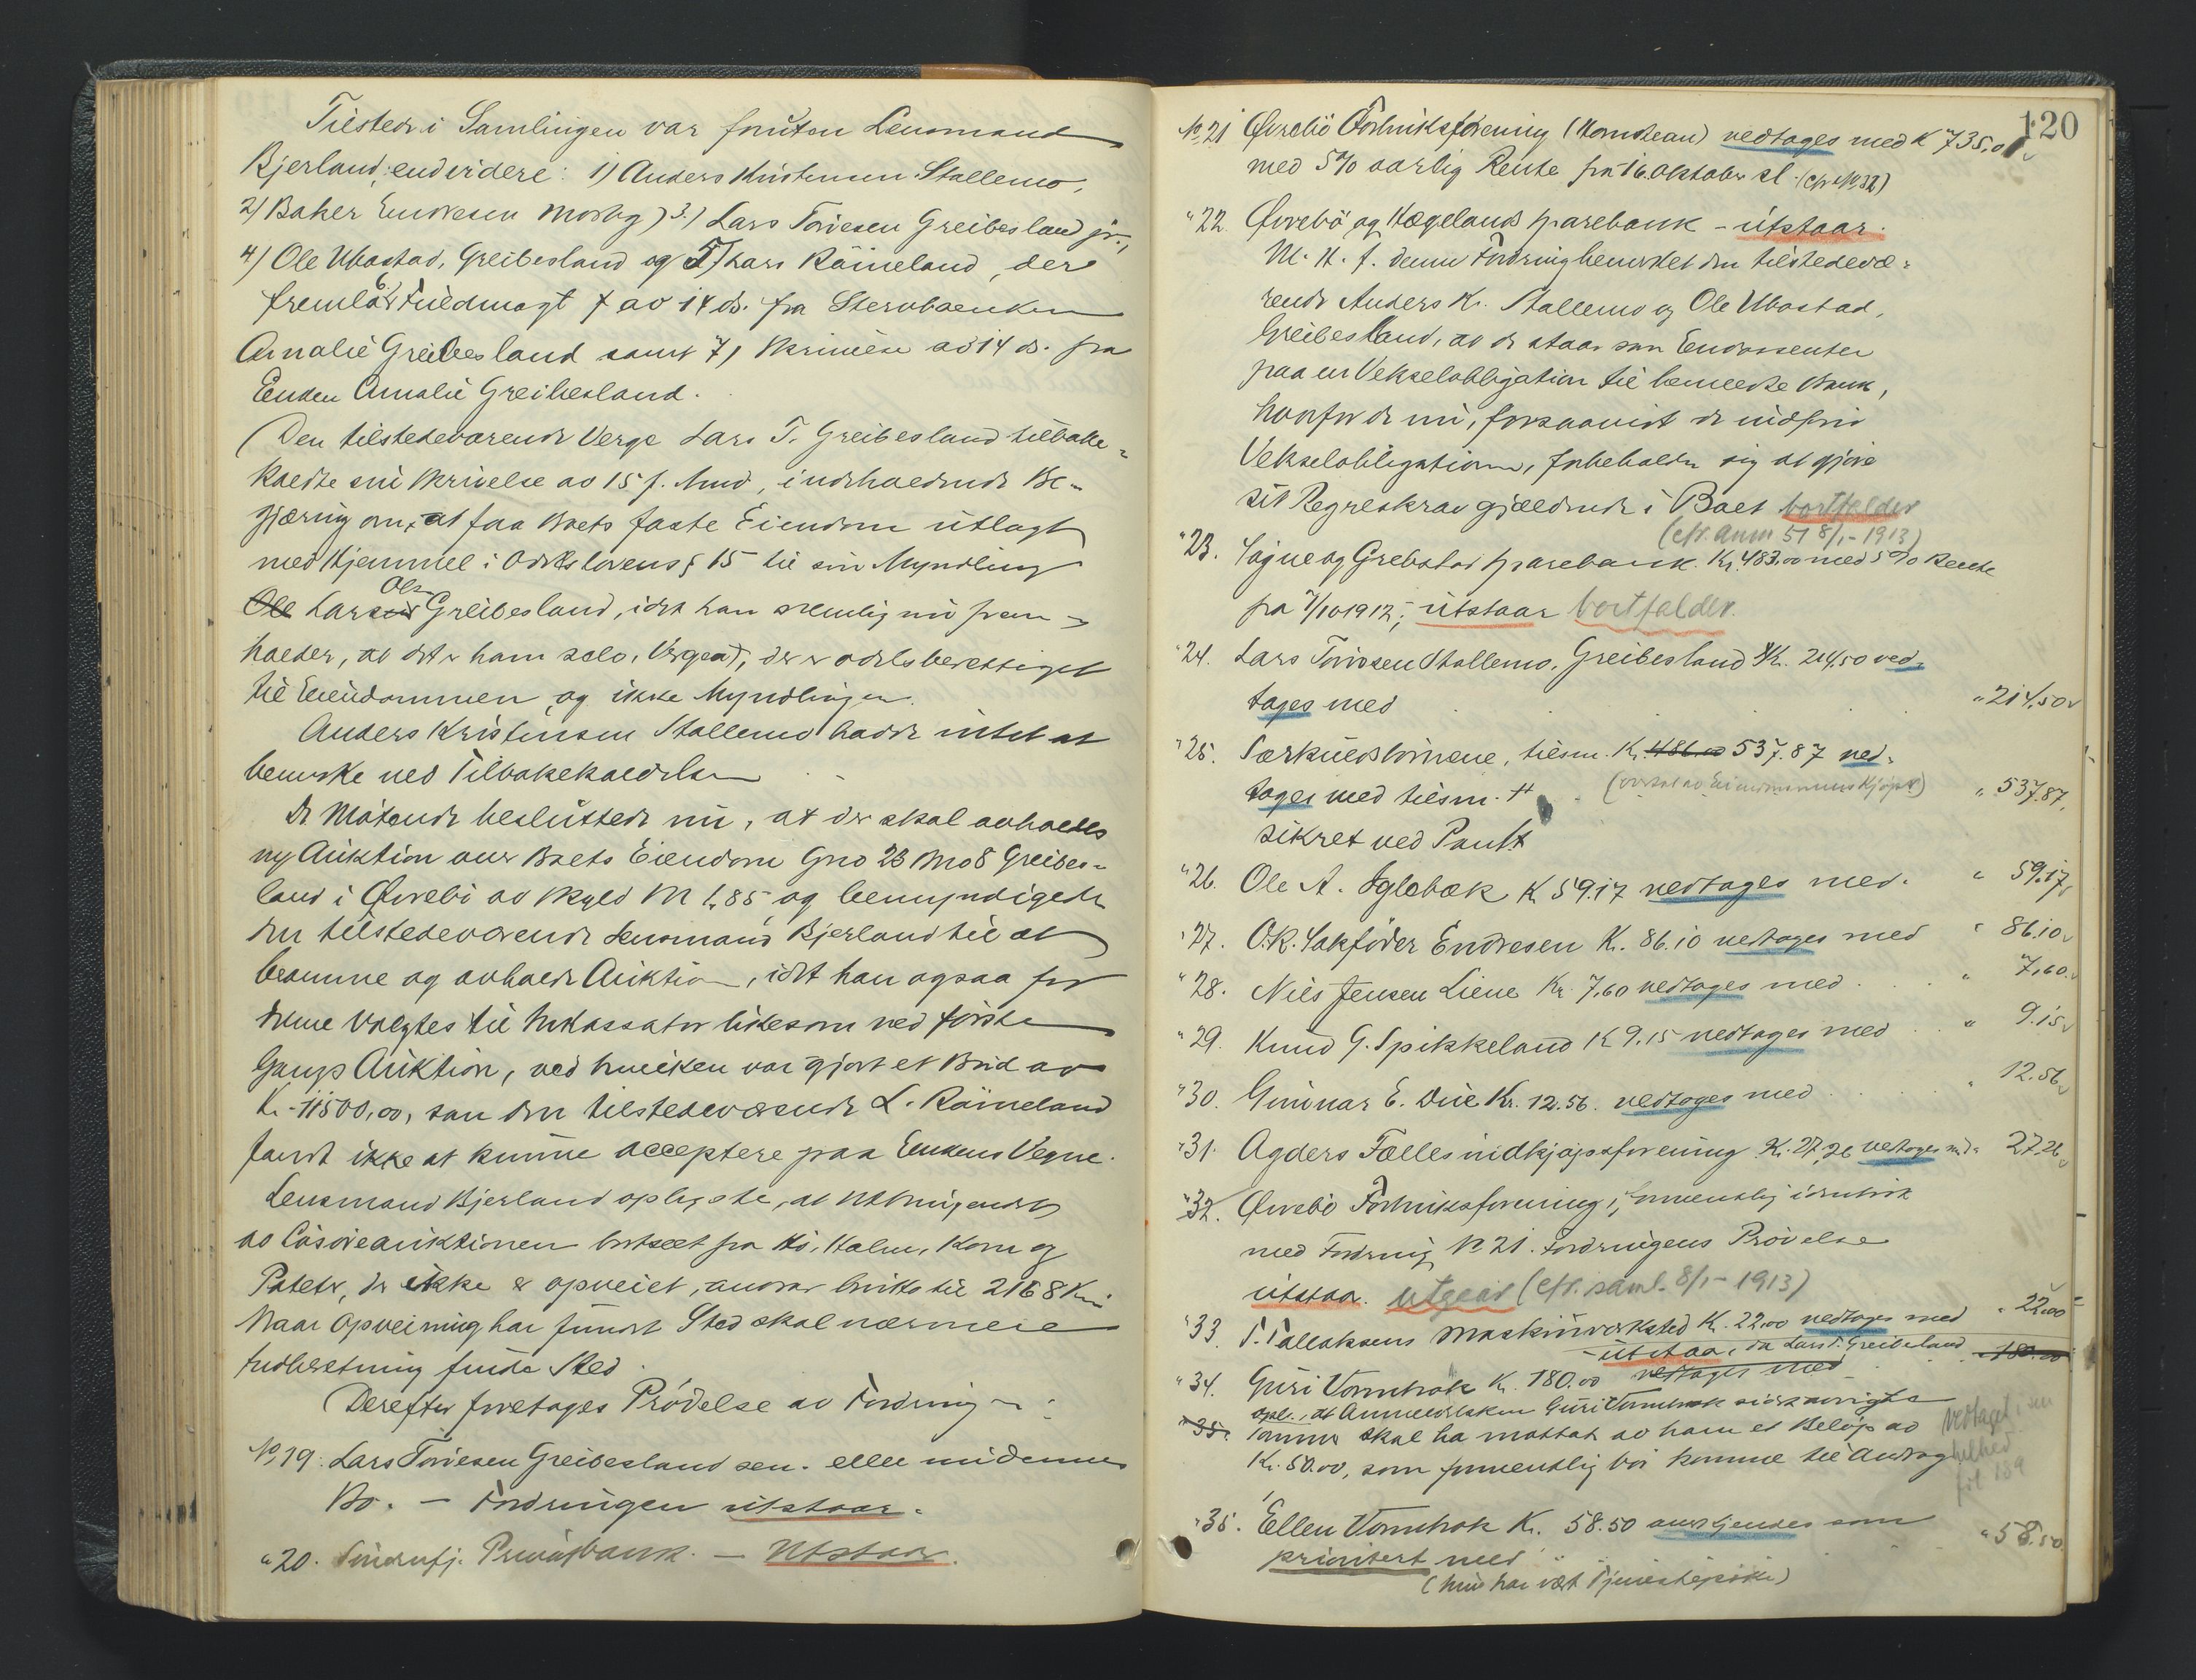 Tilstede i Samlingen var foruten Lensmand
Bjerland, endvidere: 1) Anders Kristensen Stallemo,
2) Baker Endresen Mosby, 3) Lars Torjesen Greibesland jr.,
4) Ole Ubostad, Greibesland og 5) Lars Råineland, der
fremla 6) Fuldmagt f av 14 ds. fra Stervboenken
Amalie Greibesland samt 7) Skrivelse av 14 ds. fra
Enken Amalie Greibesland.
(Den tilstedeværende Verge Lars T. Greibesland tilbake-
kaldte sin Skrivelse av 15 f. Md, indeholdende Be-
gjæring om, at faa Boets faste Eiendom utlagt
med Hjemmel i Odelslovens § 15 til sin Myndling
Ole Lars Ols. Greibesland, idet han nemlig nu frem-
holder, at det er ham selv, Vergen), der er odelsberettiget
til Eiendommen og ikke Myndlingen.
Anders Kristensen Stallemo hadde intet at
bemerke ved Tilbakekaldelsen
De Møtende besluttede nu, at der skal avholdes
ny Auktion over Boets Eiendom Gno 23 Bno 8 Greibes-
land i Øvrebø av Skyld M 1,85 og bemyndigede
den tilstedeværende Lensmand Bjerland til at
beramme og avholde Auktion, idet han ogsaa for
denne valgtes til Inkassator likesom ved første
Gangs Auktion, ved hvilken var gjort et Bud av
Kr. 11500,00, som den tilstedeværende L. Råineland
fandt ikke at kunne acceptere paa Enkens Vegne.
Lensmand Bjerland oplyste, at Utbringendet
av Løsøreauktionen bortset fra Hø, Halm, Korn og
Poteter, der ikke er opveiet, androg brutto til 2168 Kr.
Naar Opveining har fundet Sted skal nærmere
Indberetning finde Sted.
Derefter foretages Prøvelse av Fordringer:
No. 19. Lars Torjesen Greibesland sen. eller nu dennes
Bo. – Fordringen utstaar.
" 20. Søndenfj. Privatbank. – Utstaar.
120
No. 21 Øvrebø Forbruksforening (Homstean) vedtages med K 735,0
med 5% aarlig Rente fra 16. Oktober sl. (cfr No 32)
" 22. Øvrebø og Hægelands Sparebank – utstaar.
M. H. t. denne Fordring bemerket den tilstedevæ-
rende Anders Kr. Stallemo og Ole Ubostad,
Greibesland, at de staar som Endossenter
paa en Vekselobligation til bemeldte Bank,
hvorfor de nu, forsaavidt de indfrir
Vekselobligationen, forbeholder sig at gjøre
sit Regreskrav gjældende i Boet bortfalder
(cfr. anm 51 8/1-1913)
" 23. Søgne og Greipstad Sparebank. Kr. 483.00 med 5% Rente
fra 7/10 1912; utstaar bortfalder.
" 24. Lars Torjesen Stallemo, Greibesland Kr. 214,50 ved-
tages med " 214,50
" 25. Særkuldsbørnene, tilsm. Kr. 486.00 537.87 ved-
tages med tilsm. (overtat av Eiendommens Kjøper) " 537.87,
sikret ved Pant
" 26. Ole A. Iglebæk K 59.17 vedtages med. " 59.17
" 27. O.R. Sakfører Endresen K. 86.10 vedtages med " 86.10
" 28. Nils Jensen Liene Kr. 7,60 vedtages med " 7,60.
" 29. Knud G. Spikkeland K 9,15 vedtages med " 9.15
" 30. Gunnar E. Due Kr. 12.56. vedtages med " 12.56
" 31. Agders Fællesindkjøpsforening K. 27,26 vedtages md " 27,26
" 32. Øvrebø Forbruksforening, formentlig identisk
med Fordring No 21. Fordringens Prøvelse
utstaar. utgaar (cfr. saml. 8/1-1913)
" 33. T. Tallaksens Maskinverksted K. 22.00 vedtages med " 22.00
– utstaar, da Lars T. Greibesland 180.00
" 34. Guri Vomhok K. 180.00 vedtages med
opl., at Anmelderskan Guri Vomhok sidstavvigte
" 35. Sommer skal ha mottat av ham et Beløp av
Kr. 50.00, som formentlig bør komme til Avdrag
Vedtaget i sin helhed fol 139
" 35. Ellen Vomhok K. 58.50 anerkjendes som
prioritert med " 58.50
(hun har vært Tjenestepike)